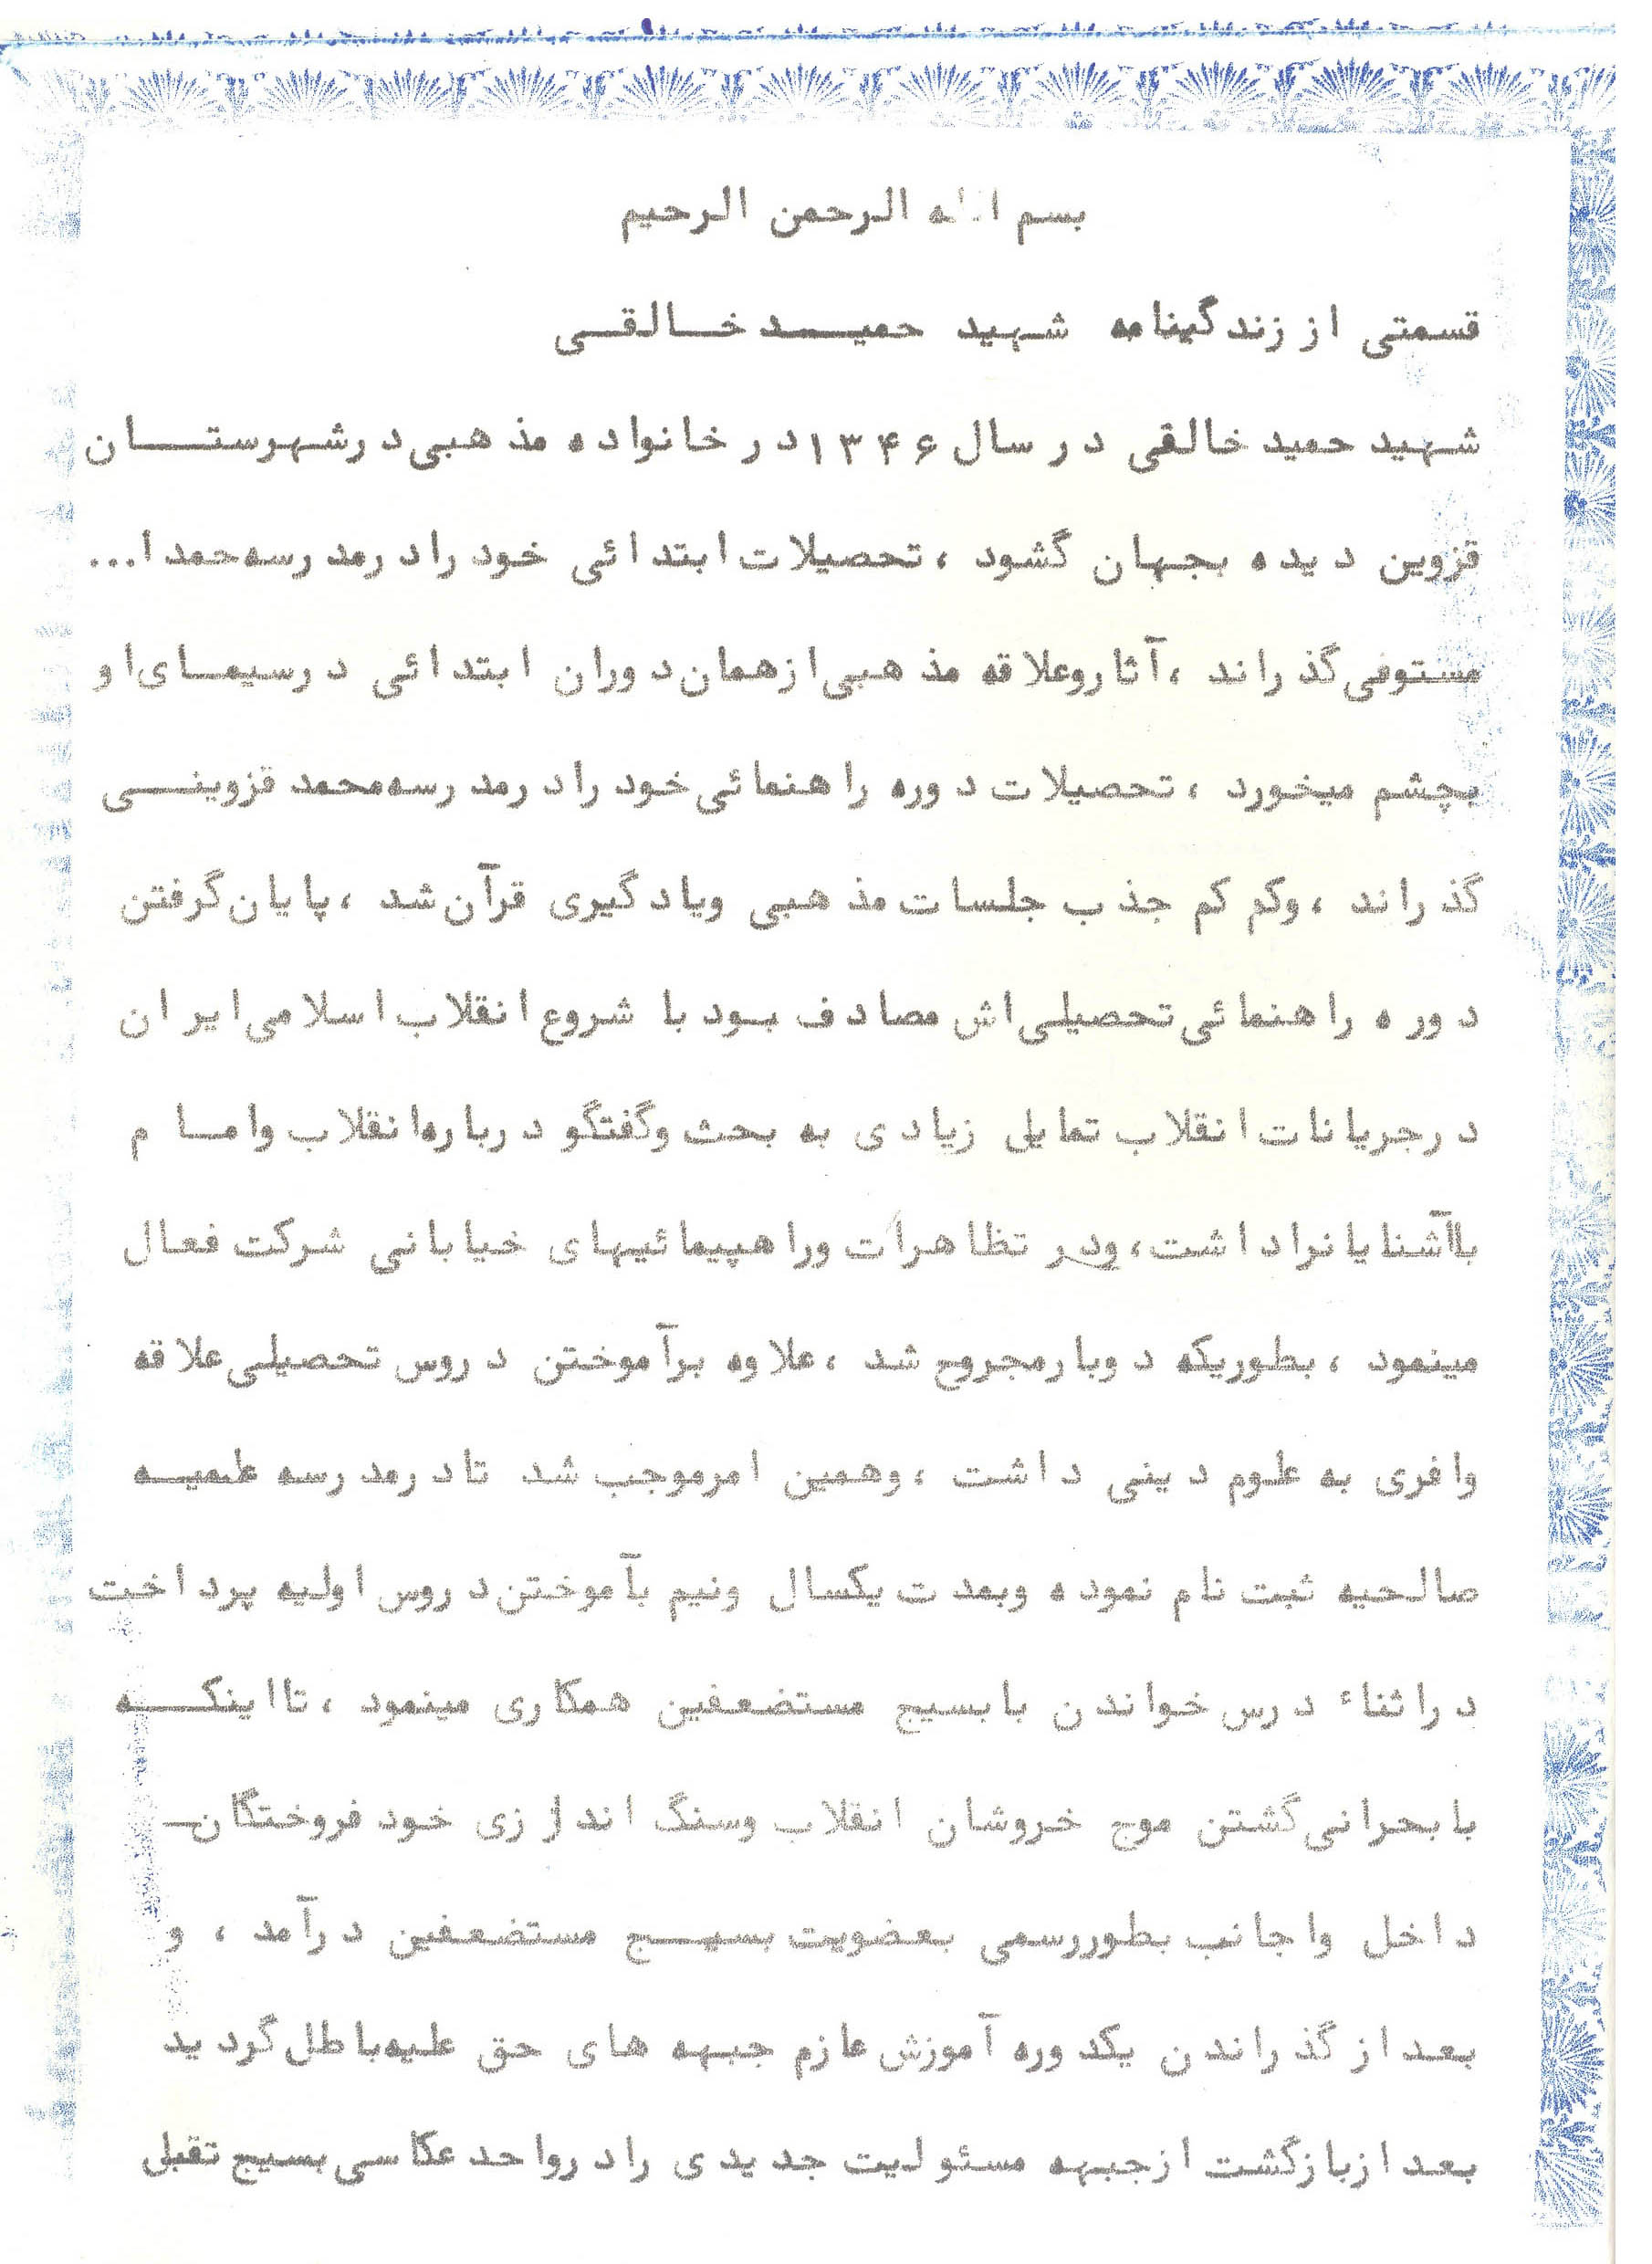 بسم الله الرحمن الرحیم
قسمتی از زندگینامه شهید حمید خالقی
شهید حمید خالقی در سال ۱۳۴۶ در خانواده مذهبی در شهرستان
قزوین دیده بجهان گشود ، تحصیلات ابتدائی خود را در مدرسه حمدا...
مستوفی گذراند ، آثار و علاقه مذهبی از همان دوران ابتدائی در سیمای او
بچشم میخورد ، تحصیلات دوره راهنمائی خود را در مدرسه محمد قزوینی
گذراند ، وکم کم جذب جلسات مذهبی ویادگیری قرآن شد ، پایان گرفتن
دوره راهنمائی تحصیلی اش مصادف بود با شروع انقلاب اسلامی ایران
در جریانات انقلاب تمایل زیادی به بحث وگفتگو درباره انقلاب وامام
باآشنایانرا داشت، ودر تظاهرات وراهپیمائیهای خیابانی شرکت فعال
مینمود ، بطوریکه دوبار مجروح شد ، علاوه برآموختن دروس تحصیلی علاقه
وافری به علوم دینی داشت ، وهمین امر موجب شد تادر مدرسه علمیه
صالحیه ثبت نام نموده وبمدت یکسال ونیم بآموختن دروس اولیه پرداخت
در اثناء درس خواندن با بسیج مستضعفین همکاری مینمود ، تااینکه
با بحرانی گشتن موج خروشان انقلاب وسنگ اندازی خود فروختگان
داخل واجانب بطور رسمی بعضویت بسیج مستضعفین درآمد ، و
بعد از گذراندن یکدوره آموزش عازم جبهه های حق علیه باطل گردید
بعد از بازگشت از جبهه مسئولیت جدیدی را در واحد عکاسی بسیج تقبل